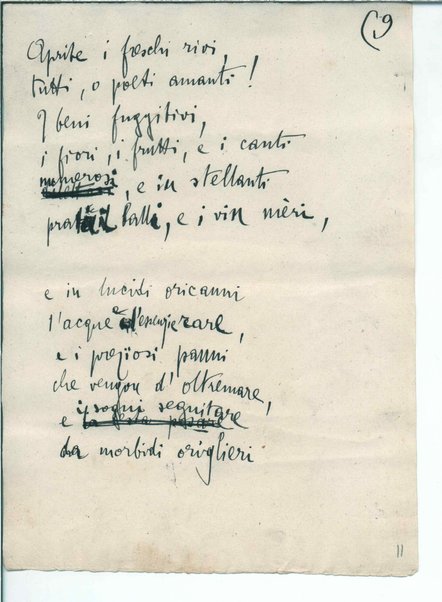 (9
Aprite i freschi rivi,
tutti, o poeti amanti!
I beni fuggitivi,
i fiori, i frutti, e i canti
numerosi, e in stellanti
prati i balli, e i vin mèri,
e in lucidi oricanni
l'acque e l'essenze rare,
e i preziosi panni
che vengon d'oltremare,
e i sogni seguitare
da morbidi origlieri
11